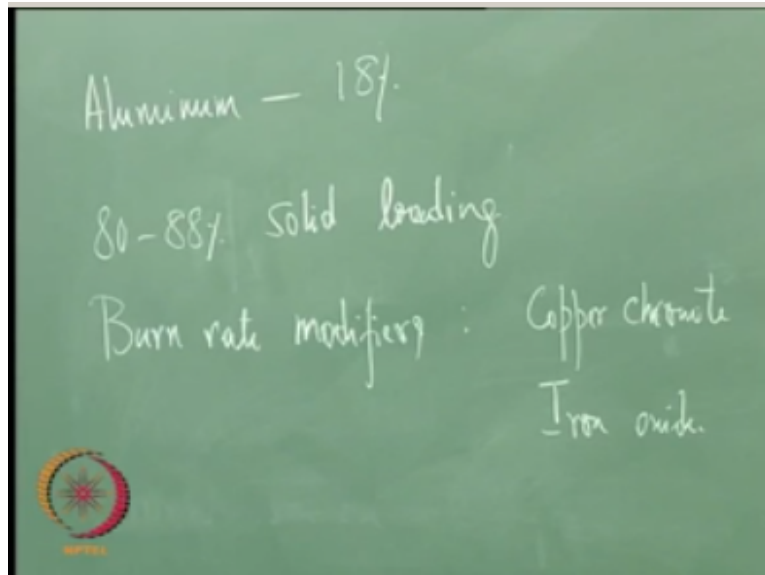 Aluminum — 18%.
80-88%. Solid loading
Burn rate modifiers : Copper chromite
Iron oxide.
NPTEL